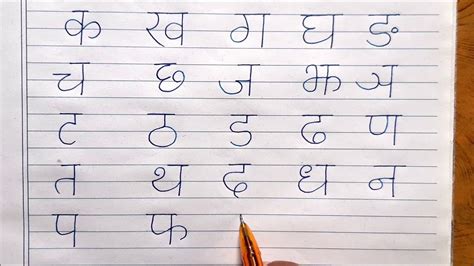 क ख ग घ ङ
च छ ज झ ञ
ट ठ ड ढ ण
त थ द ध न
प फ